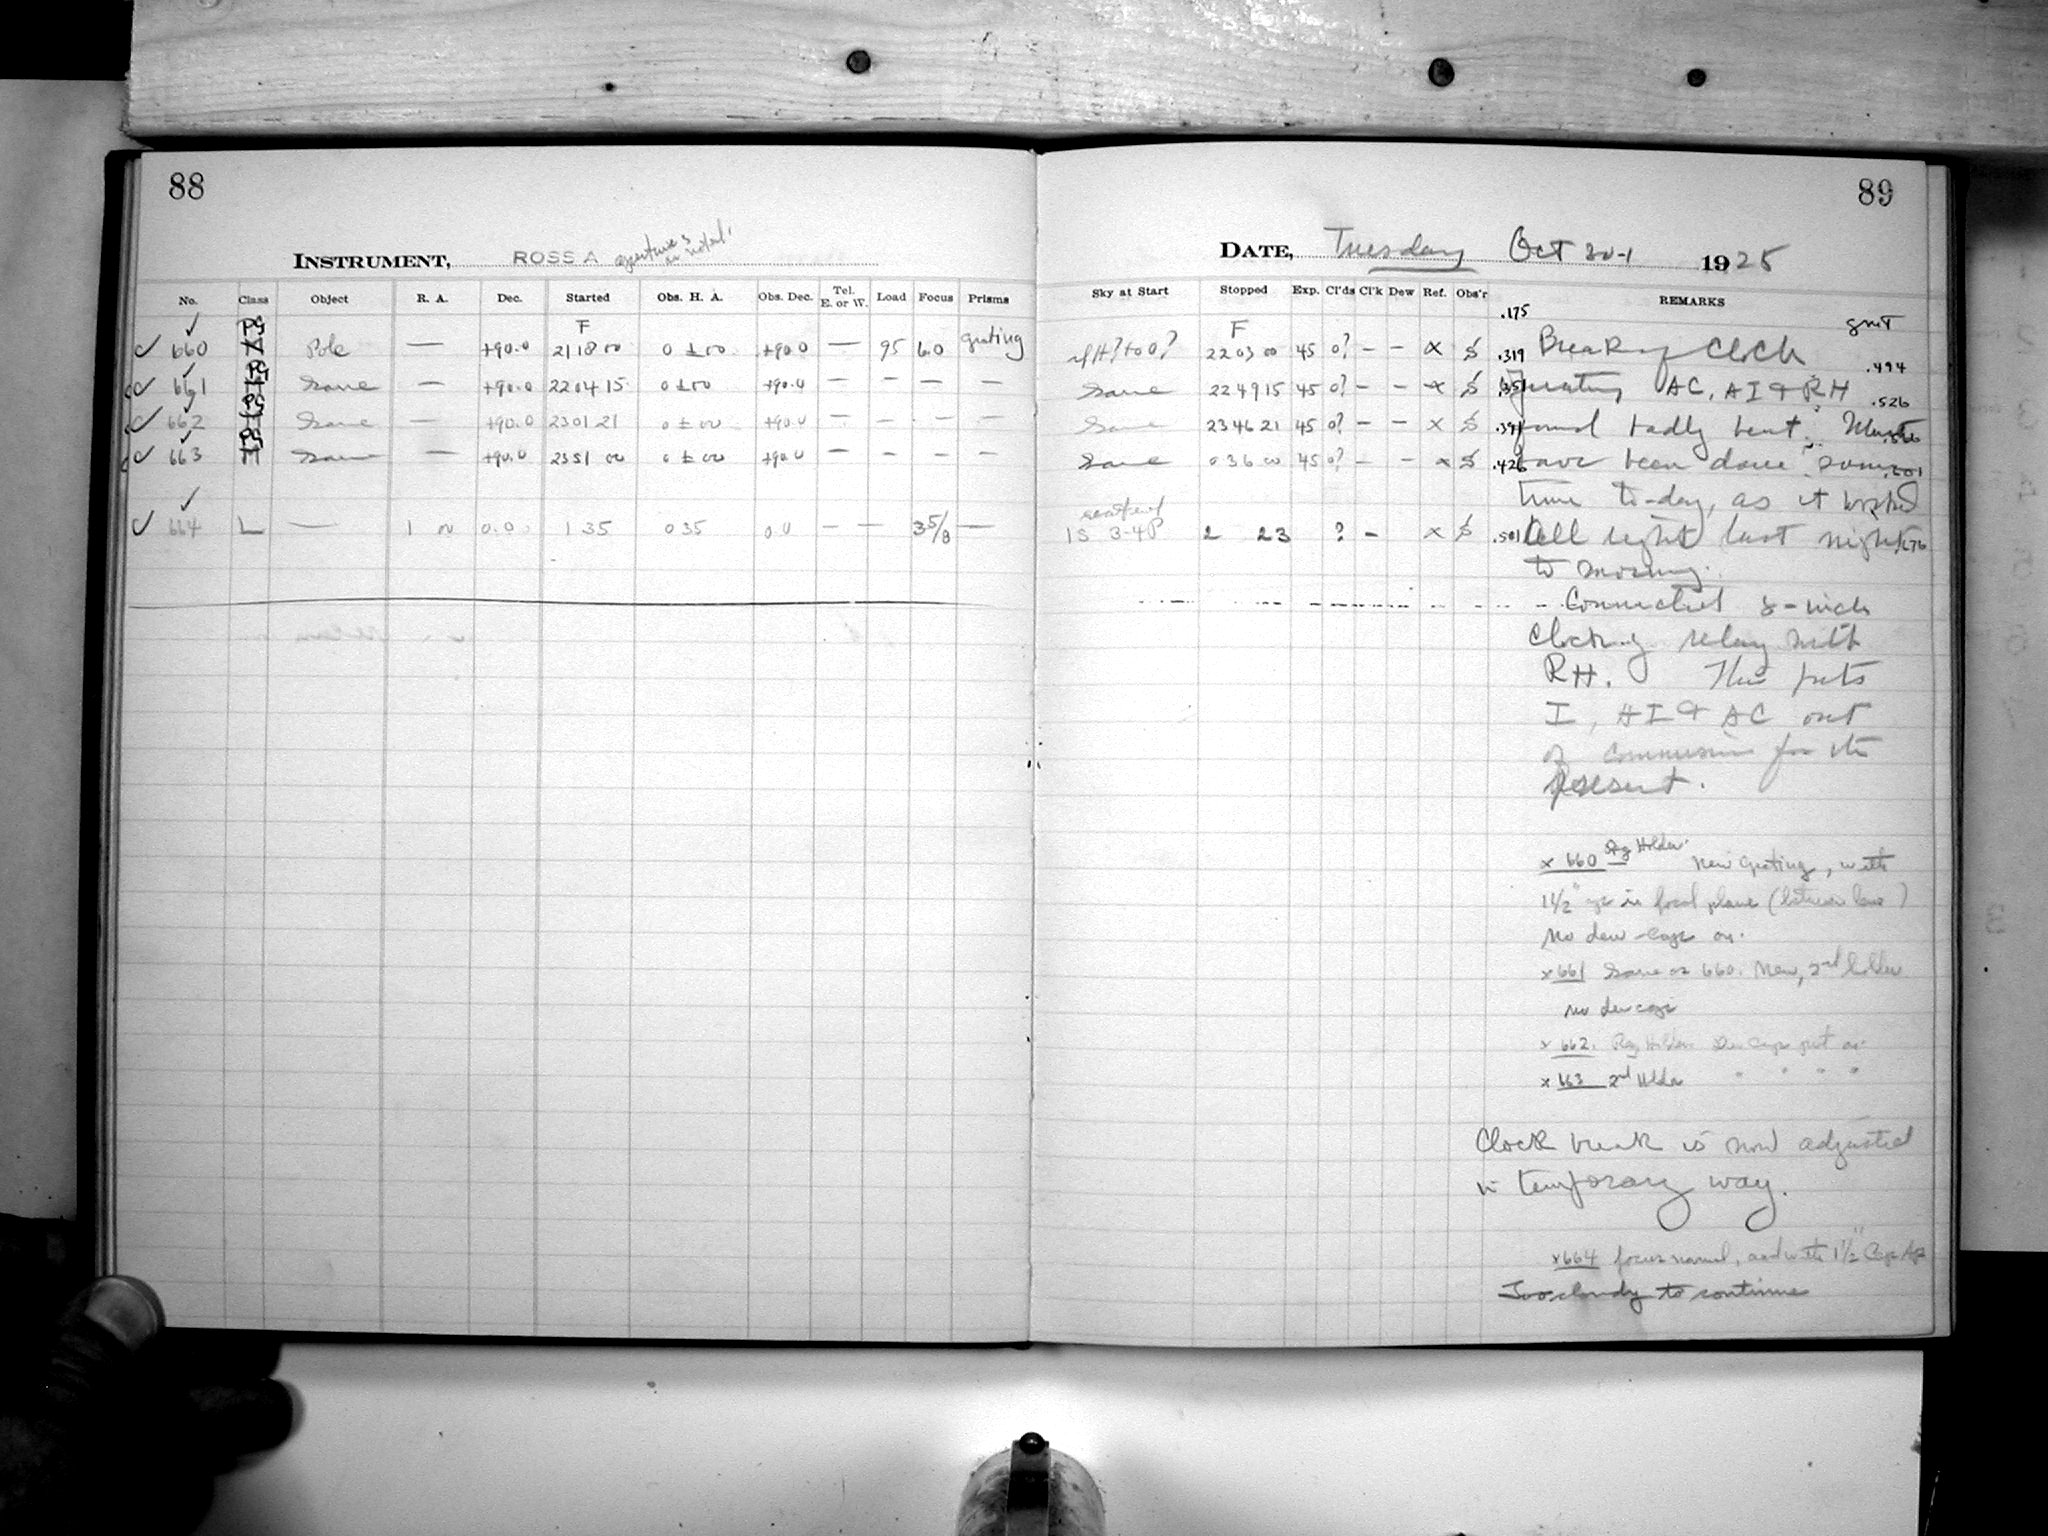 88
INSTRUMENT, ROSS A apertures as noted.
No. Class Object R. A. Dec. Started Obs. H. A. Obs. Dec. Tel. E. or W. Load Focus Prisms
F
660 Pole — +90.0 21 18 00 0 ± 00 +90.0 — 95 6.0 grating
661 Same — +90.0 22 04 15 0 ± 00 +90.0 — — — —
662 Same — +90.0 23 01 21 0 ± 00 +90.0 — — — —
663 Same — +90.0 23 51 00 0 ± 00 +90.0 — — — —
664 L — 1 00 0.0 1 35 0 35 0.0 — — 3 5/8 —
89
DATE, Tuesday Oct 20-1 1925
Sky at Start Stopped Exp. Cl'ds Cl'k Dew Ref. Obs'r REMARKS
.175 GMT
F
22 03 00 45 0? – – x .319 Break of Clock .494
Same 22 49 15 45 0? – – x .351 AC, AI & RH .526
Same 23 46 21 45 0? – – x .391 found badly bent. Must
Same 0 36 00 45 0? – – x .426 have been done some .601
time to-day, as it worked
1S 3-4P 2 23 ? – x .501 all right last night .676
to morning.
Connected 8-inch
Clock relay with
RH. This puts
I, AI & AC out
of commission for the
present.
x 660 Reg Holder. New grating, with
1 1/2" ap in focal plane (between lens)
No dew-cap on.
x 661 Same as 660. New, 2nd holder
no dew cap
x 662. Reg Holder Dew Cap put on
x 663 2nd Holder " " " "
Clock break is now adjusted
in temporary way.
x 664 focus normal, and with 1 1/2" Cap Ap
Too cloudy to continue